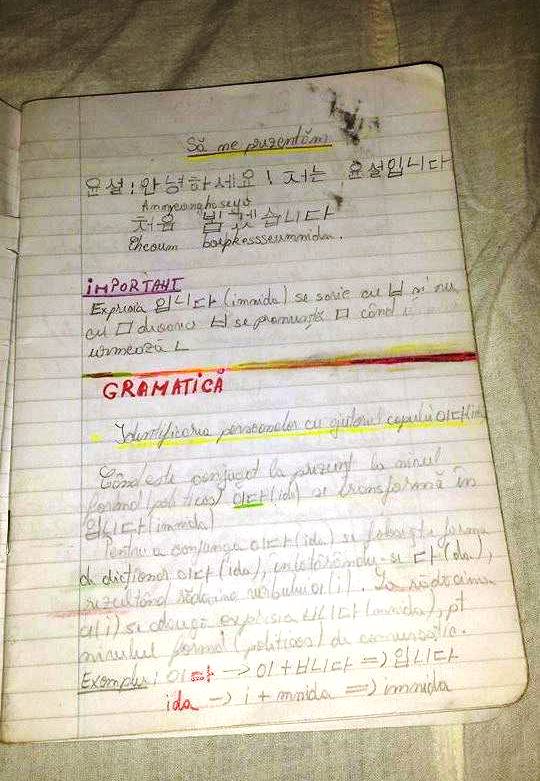 Să me prezentăm
윤설! 안녕하세요! 저는 윤설입니다
Annyeonghaseyo
처음 뵙겠습니다
Cheoum boepkessseumnida.
IMPORTANT
Expresia 입니다 (imnida) se scrie cu ㅂ și nu
cu ㅁ ㅂ se pronunță ㅁ când îi
urmează ㄴ
GRAMATICĂ
Identificarea persoanelor cu ajutorul copulei 이다
Când este conjugat la prezent la nivel
formal politicos 이다 (ida) se transformă în
입니다 (imnida)
Pentru a conjunga 이다 (ida) se folosește forma
de dicționar 이다 (ida), înlăturându-se 다 (da),
rezultând rădăcina verbului 이 (i). La rădăcina
이 (i) se adaugă expresia ㅂ니다 (mnida), pt
nivelul formal (politicos) de conversație.
Exemplu: 이다 -> 이 + ㅂ니다 => 입니다
ida -> i + mnida => imnida